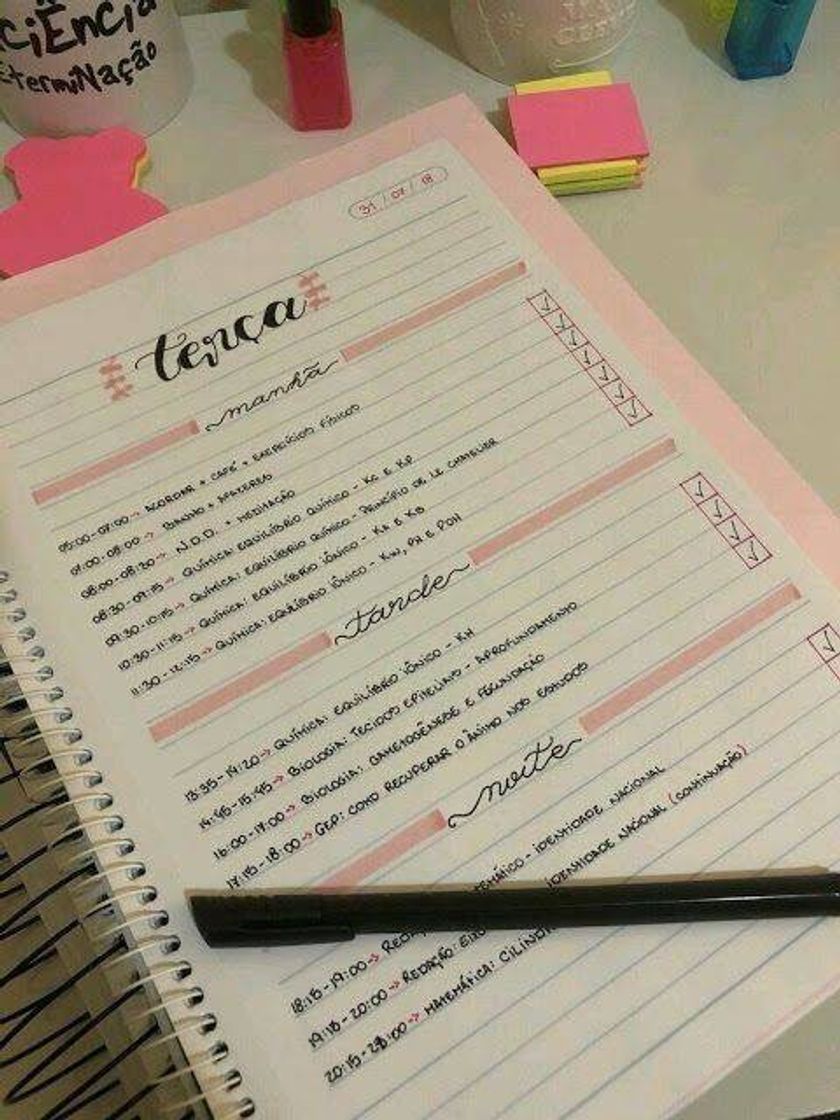 ciência
determinação
31/07/18
terça
manhã
05:00-07:00 → ACORDAR + CAFÉ + EXERCÍCIOS FÍSICOS
07:00-08:00 → BANHO + AFAZERES
08:00-08:30 → N.D.D. + MEDITAÇÃO
08:30-09:15 → QUÍMICA: EQUILÍBRIO QUÍMICO - KC E KP
09:30-10:15 → QUÍMICA: EQUILÍBRIO QUÍMICO - PRINCÍPIO DE LE CHATELIER
10:30-11:15 → QUÍMICA: EQUILÍBRIO IÔNICO - KA E KB
11:30-12:15 → QUÍMICA: EQUILÍBRIO IÔNICO - KW, PH E POH
tarde
13:35-14:20 → QUÍMICA: EQUILÍBRIO IÔNICO - KH
14:45-15:45 → BIOLOGIA: TECIDOS EPITELIAIS - APROFUNDAMENTO
16:00-17:00 → BIOLOGIA: GAMETOGÊNESE E FECUNDAÇÃO
17:15-18:00 → GEP: COMO RECUPERAR O ÂNIMO NOS ESTUDOS
noite
18:15-19:00 → TEMÁTICO - IDENTIDADE NACIONAL
19:15-20:00 → REDAÇÃO: EIXO IDENTIDADE NACIONAL (CONTINUAÇÃO)
→ MATEMÁTICA: CILINDR